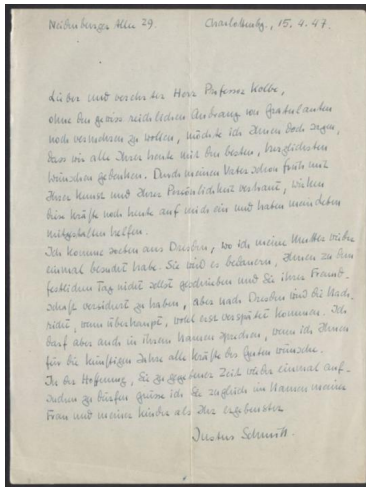 Charlottenbg., 15.4.47.
Lieber und verehrter Herr Professor Kolbe,
ohne den gewiss reichlichen Andrang von Gratulanten
noch vermehren zu wollen, möchte ich Ihnen doch sagen,
dass wir alle Ihrer heute mit den besten, herzlichsten
Wünschen gedenken. Durch meinen Vater schon früh mit
Ihrer Kunst und Ihrer Persönlichkeit vertraut, wirken
Kräfte noch heute auf mich ein und haben mein Leben
mitgestalten helfen.
Ich komme soeben aus Dresden, wo ich meine Mutter wieder
einmal besucht habe. Sie wird es bedauern, Ihnen zu dem
festlichen Tag nicht selbst geschrieben und Sie ihrer Freund-
schaft versichert zu haben, aber nach Dresden wird die Nach-
richt, wenn überhaupt, wohl erst verspätet kommen. Ich
darf aber auch in ihrem Namen sprechen, wenn ich Ihnen
für die künftigen Jahre alle Kräfte des Guten wünsche.
In der Hoffnung, Sie zu gegebener Zeit wieder einmal auf-
suchen zu dürfen grüsse ich Sie zugleich im Namen meiner
Frau und meiner Kinder als Ihr ergebenster
Justus Schmitt.